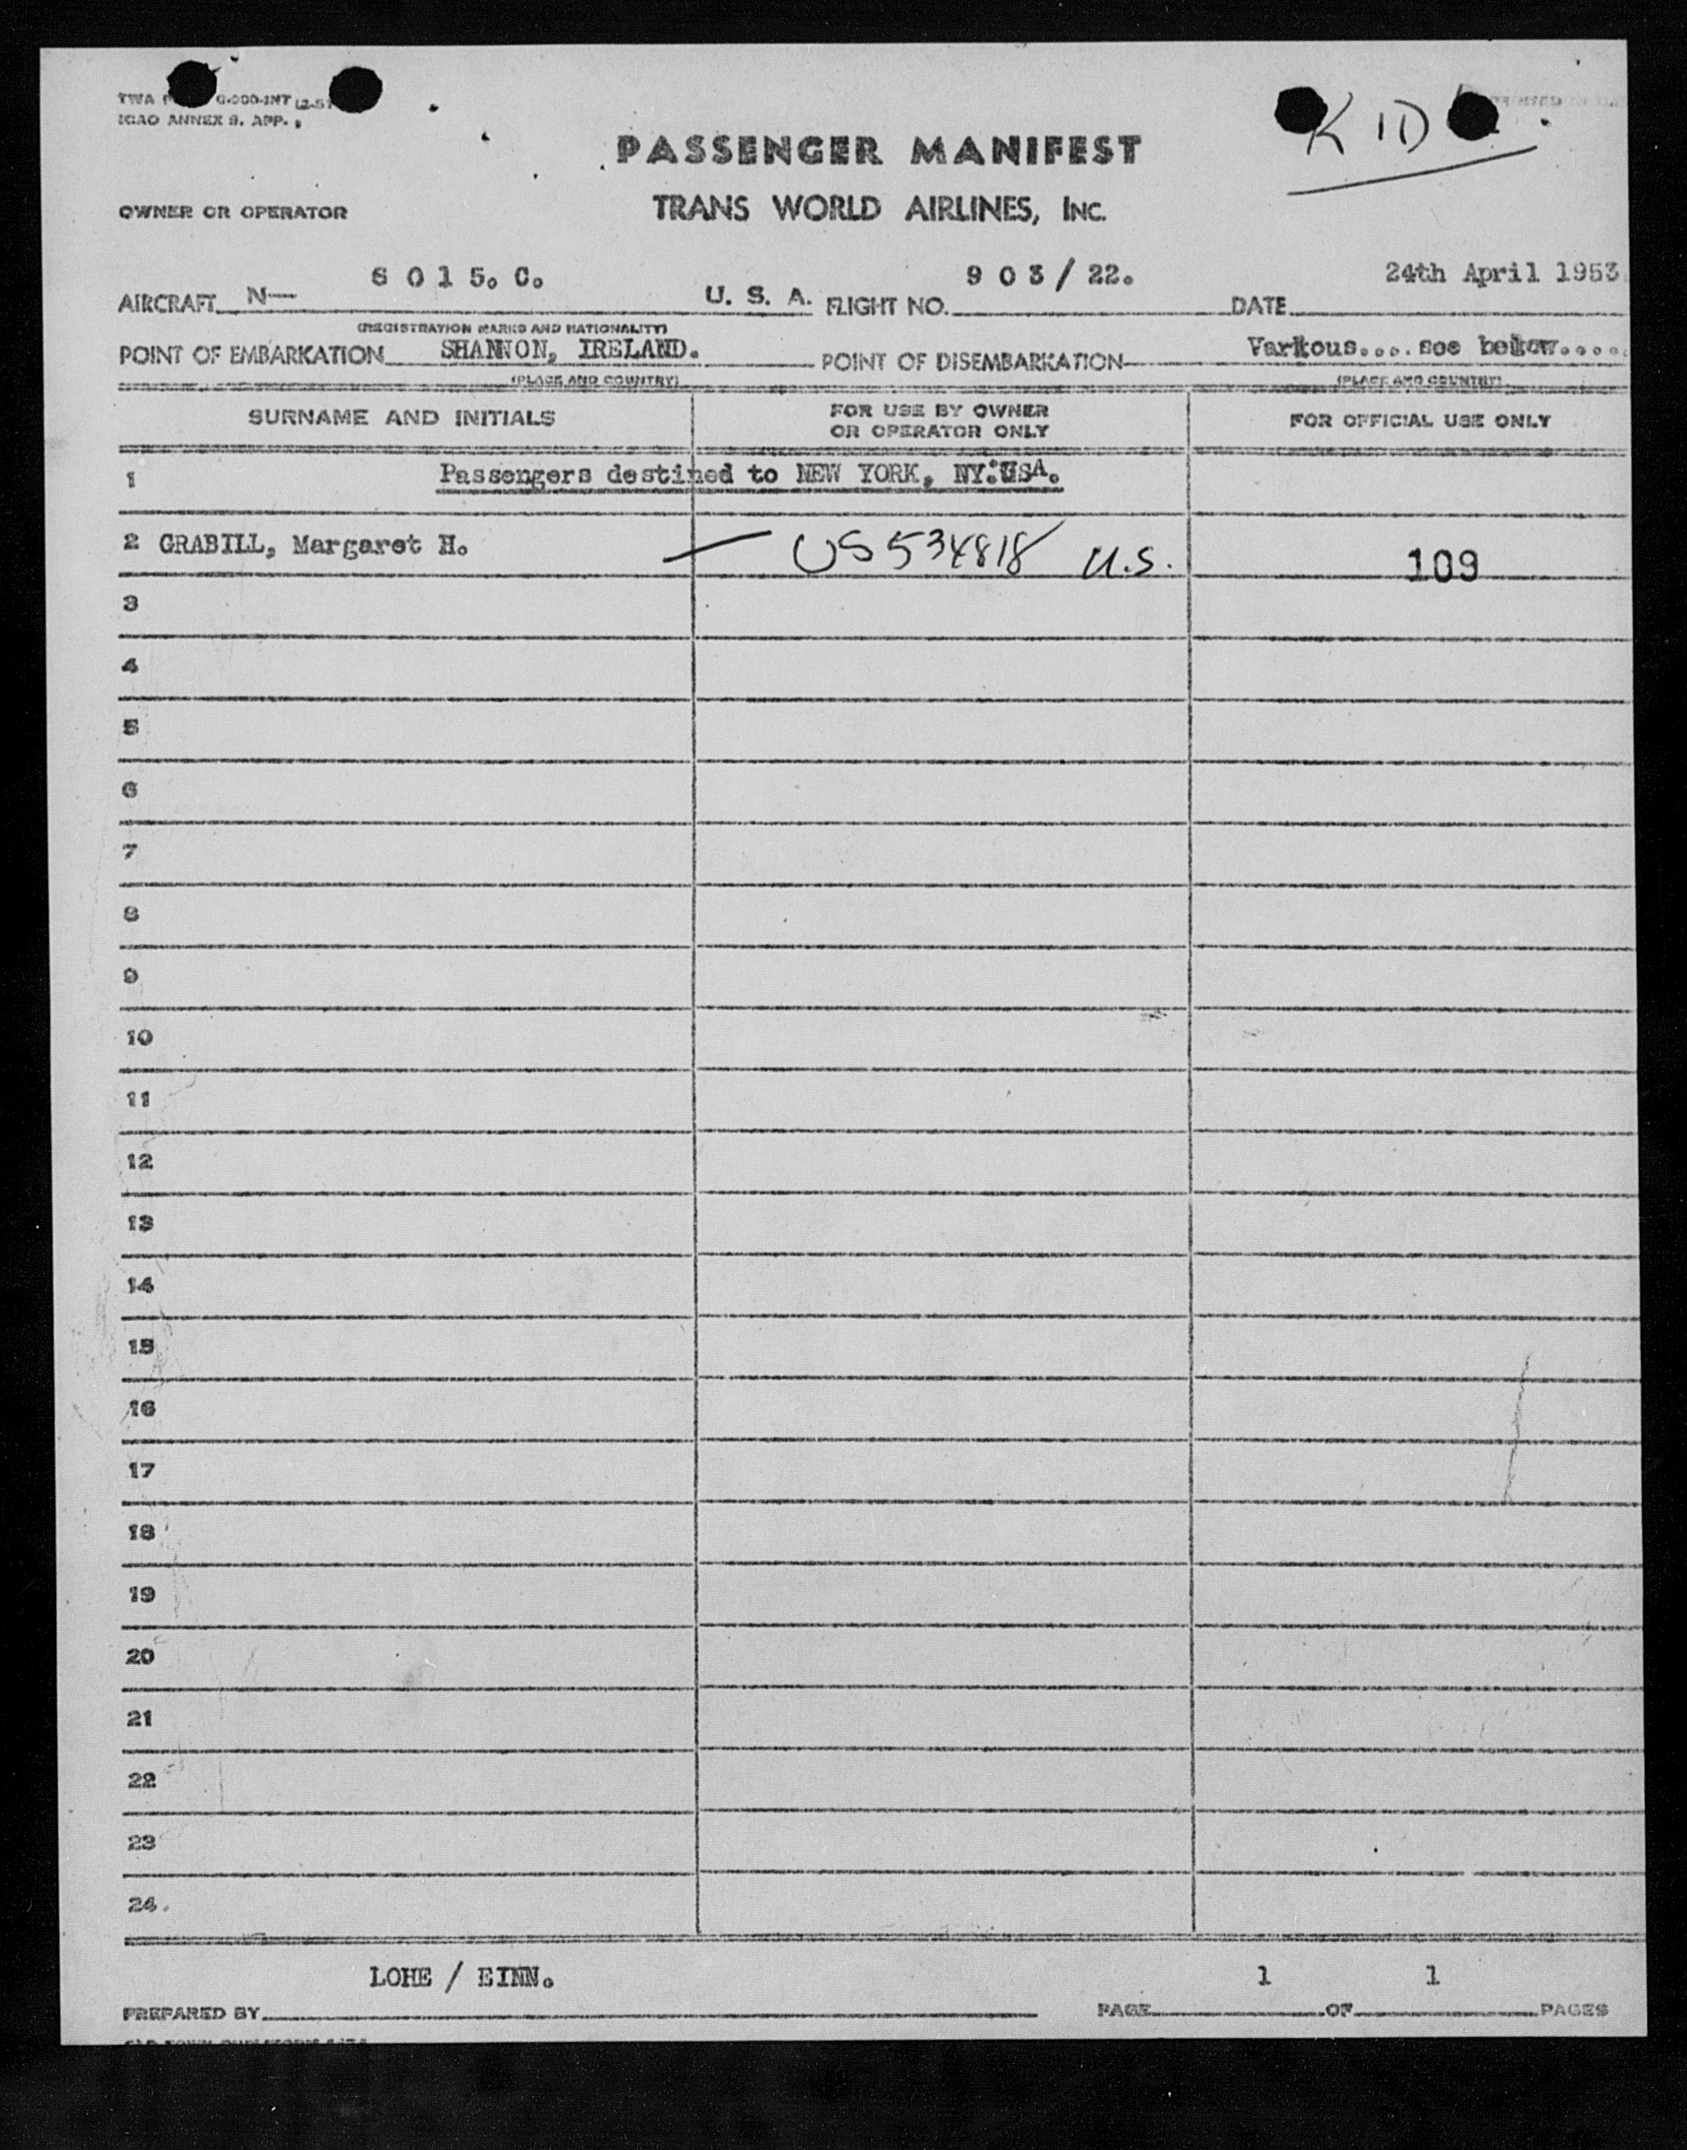 TWA G-000-INT (2-51
ICAO ANNEX 9. APP.
K ID
PASSENGER MANIFEST
OWNER OR OPERATOR TRANS WORLD AIRLINES, INC.
AIRCRAFT N— 6 0 1 5. C. U. S. A. FLIGHT NO. 9 0 3 / 22. DATE 24th April 1953
(REGISTRATION MARKS AND NATIONALITY)
POINT OF EMBARKATION SHANNON, IRELAND. POINT OF DISEMBARKATION Various.... see below.....
(PLACE AND COUNTRY) (PLACE AND COUNTRY)
SURNAME AND INITIALS FOR USE BY OWNER OR OPERATOR ONLY FOR OFFICIAL USE ONLY
1 Passengers destined to NEW YORK, NY. USA.
2 GRABILL, Margaret H. — US 534818 U.S. 109
3
4
5
6
7
8
9
10
11
12
13
14
15
16
17
18
19
20
21
22
23
24.
PREPARED BY LOHE / EINN. PAGE 1 OF 1 PAGES